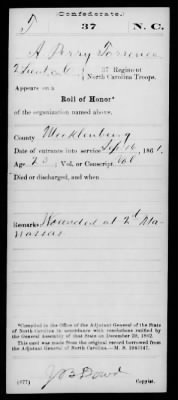 (Confederate.)
T 37 N. C.
A Perry Torrence
2 Lieut Co , 37 Regiment
North Carolina Troops.
Appears on a
Roll of Honor*
of the organization named above.
County Mecklenburg
Date of entrance into service Sept 16, 1861.
Age 23; Vol. or Conscript Vol
Died or discharged, and when
Remarks: Wounded at 2d Ma-
nassas
*Compiled in the Office of the Adjutant General of the State
of North Carolina in accordance with resolutions ratified by
the General Assembly of that State on December 20, 1862.
This card was made from the original record borrowed from
the Adjutant General of North Carolina.—M. S.
(677) Copyist.